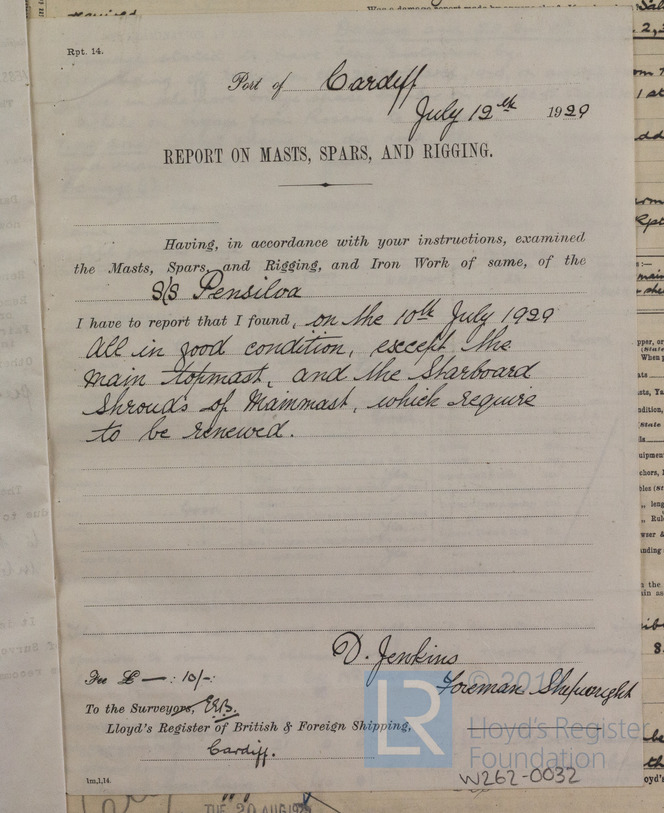 Rpt. 14.
Port of Cardiff
July 12th 1929
REPORT ON MASTS, SPARS, AND RIGGING.
Having, in accordance with your instructions, examined
the Masts, Spars, and Rigging, and Iron Work of same, of the
S/S Pensilva
I have to report that I found, on the 10th July 1929
all in good condition, except the
main topmast, and the Starboard
Shrouds of Mainmast, which require
to be renewed.
D. Jenkins
Foreman Shipwright
Fee £ — : 10/- :
To the Surveyors,
Lloyd's Register of British & Foreign Shipping,
Cardiff.
1m,1,14.
W262-0032
LR
Lloyd's Register
Foundation
TUE. 20 AUG 1929